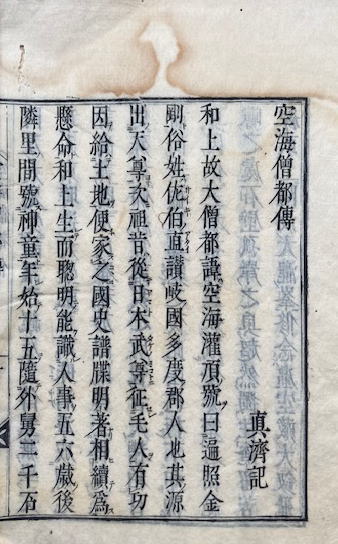 空海僧都傳
真濟記
和上故大僧都諱空海灌頂號曰遍照金
剛俗姓佐伯直讃岐國多度郡人也其源
出天尊次祖昔從日本武尊征毛人有功
因給土地便家之國史譜牒明著相續爲
懸令和上生而聰明能識人事五六歲後
隣里間號神童年始十五隨外舅二千石